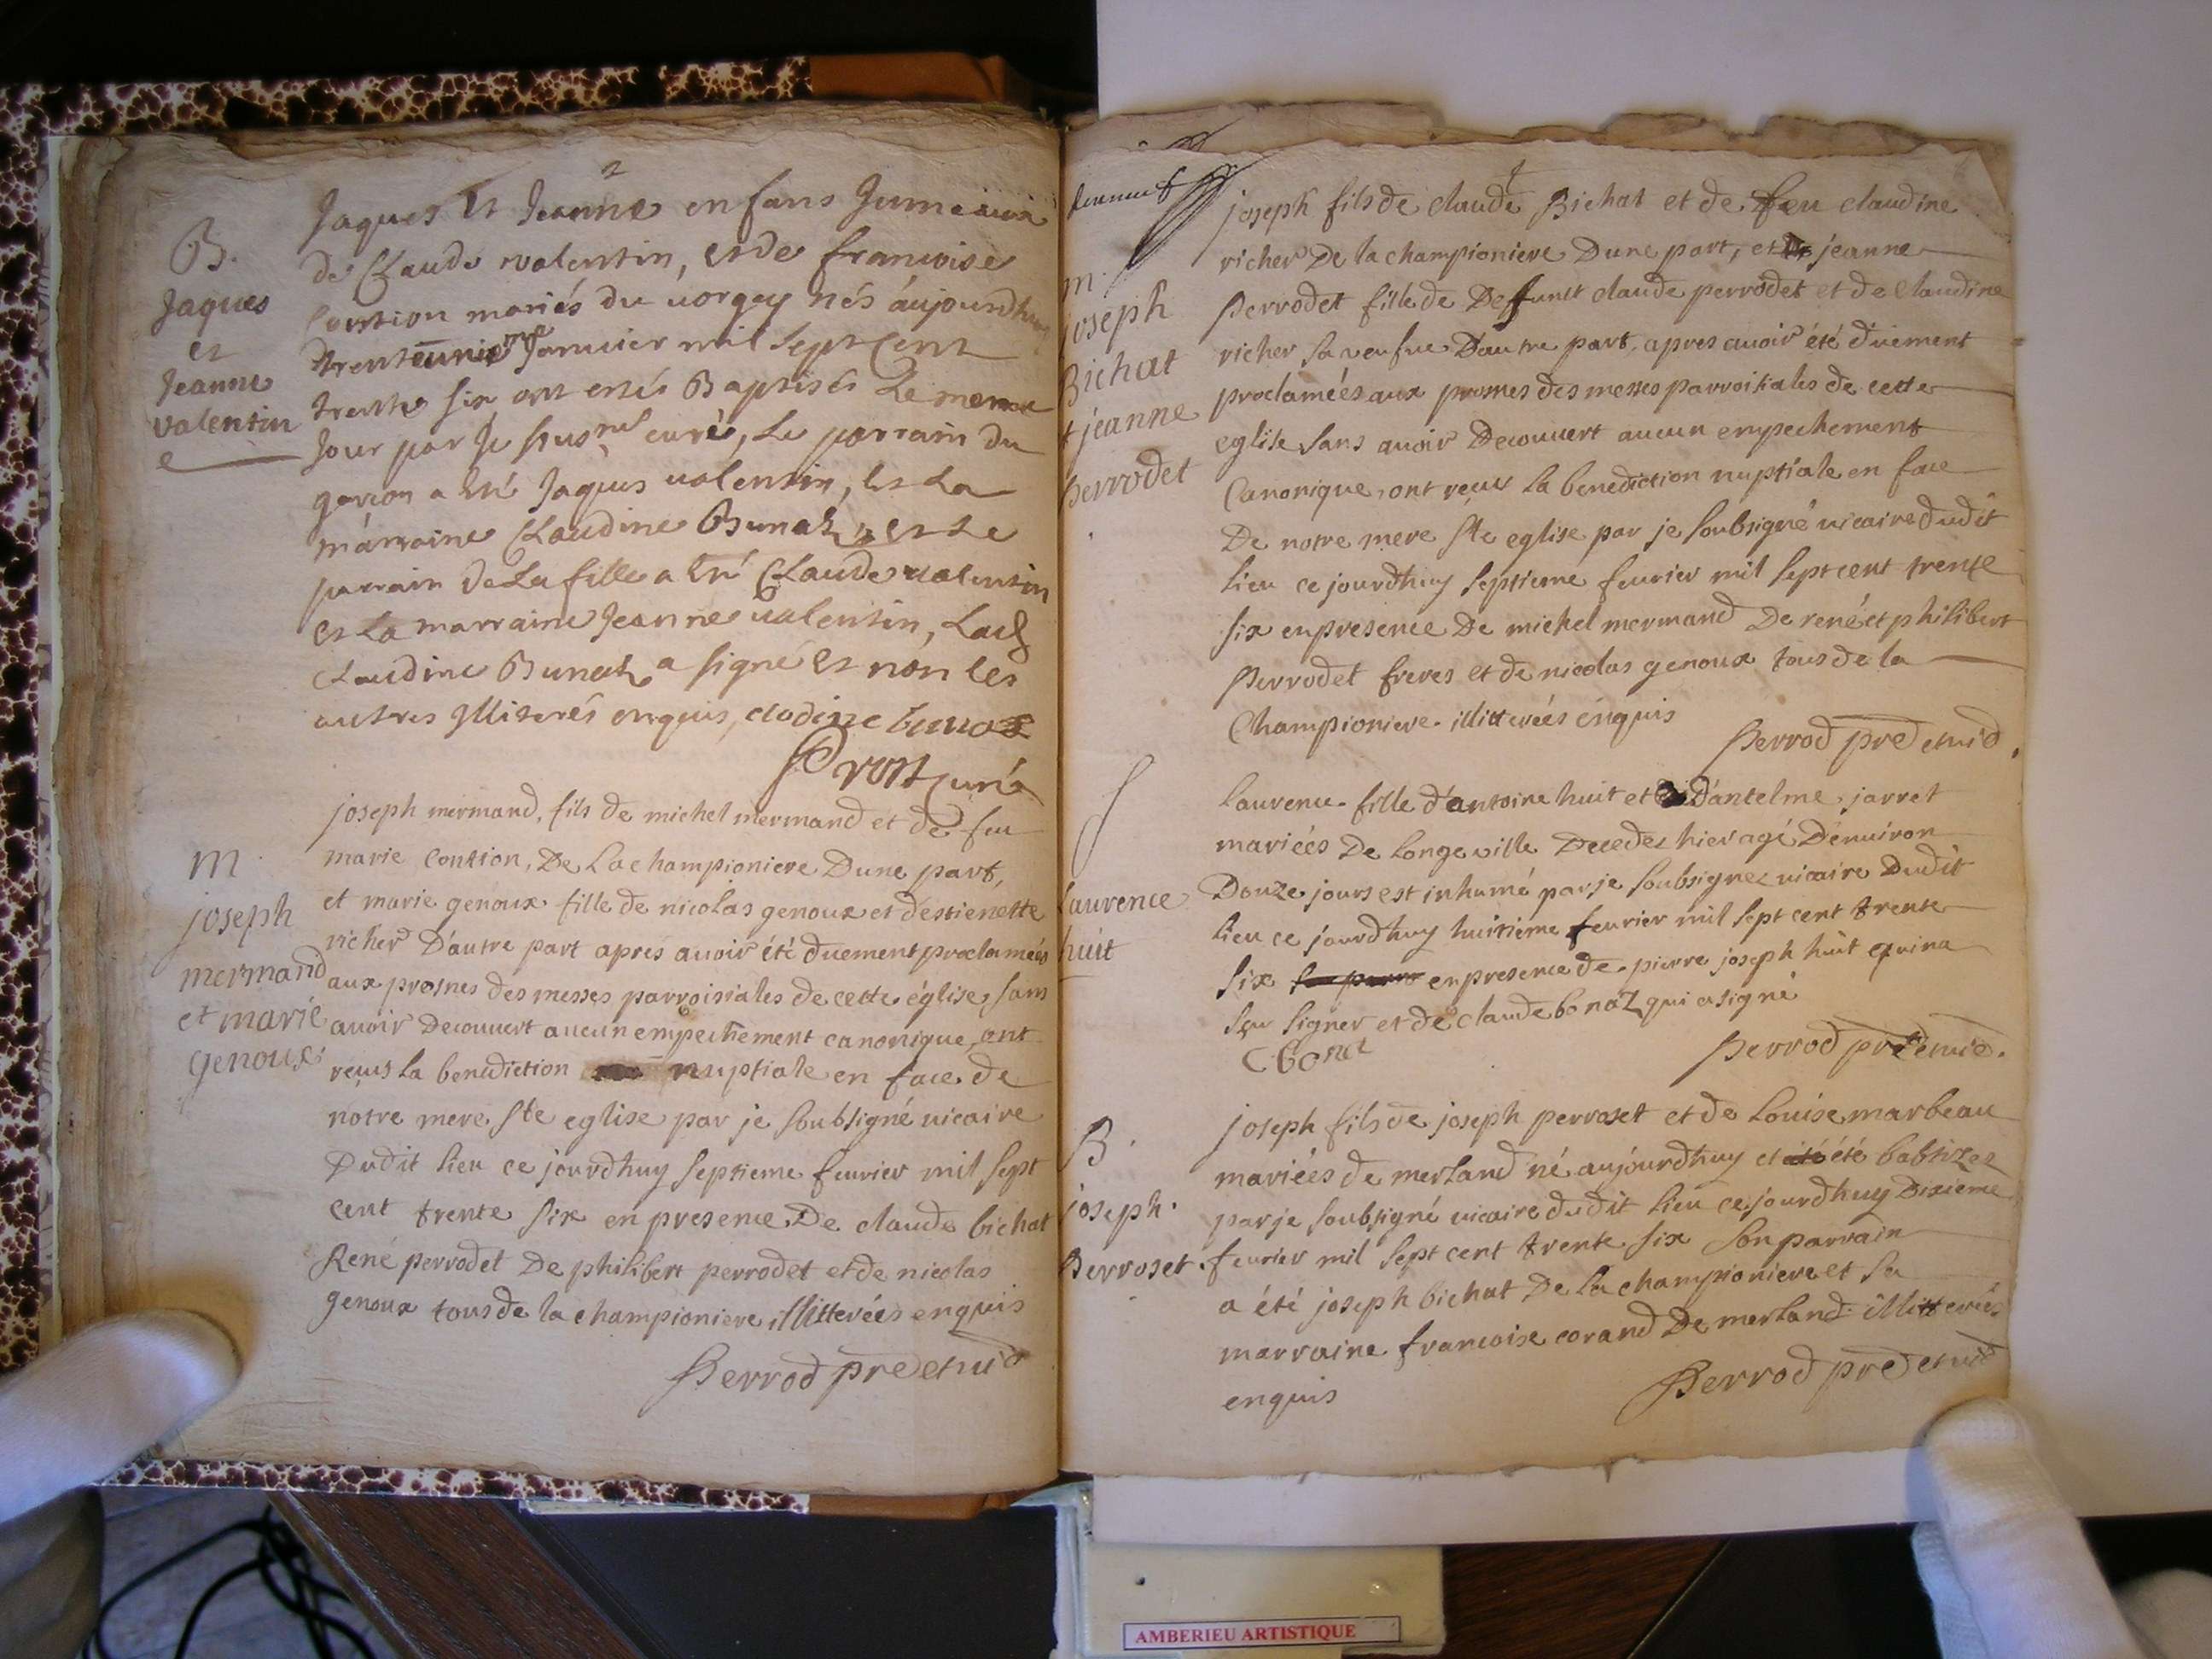 2
B.
Jaques
et
Jeanne
valentin
Jaques et Jeanne enfans Jumeaux
de Claude valentin, et de francoise
Contion mariés du uorgey nés áujourdhuy
trenteunieme Januier mil Sept Cent
trente six ont estés Baptisés Le meme
Jour par Je susné curé, Le parrain du
garcon a Eté Jaques valentin, et La
marraine Claudine Bunat et Le
parrain de La fille a Eté Claude valentin
et La marraine Jeanne valentin, Lad
Claudine Bunat a signé et non les
autres Illiterés enquis, clodine buna
Prost curé
m.
joseph
mermand
et marie
genoux
joseph mermand, fils de michel mermand et de feu
marie Contion, De La championiere Dune part,
et marie genoux fille de nicolas genoux et d'estienette
richer D'autre part apres auoir été duement proclamées
aux prosnes des messes parroissiales de cette église, sans
auoir Decouuert aucun empechement canonique, ont
reçus la benediction nuptiale en face de
notre mere Ste eglise par je soubsigné uicaire
Dudit lieu ce jourdhuy septieme feurier mil sept
cent trente six en presence De claude bichat
René perrodet De philibert perrodet et de nicolas
genoux tous de la championiere illitterées enquis
Perrod pre et uic
m.
joseph
Bichat
et jeanne
perrodet
joseph fils de claude Bichat et de feu claudine
richer De la championiere Dune part, et jeanne
Perrodet fille de Deffunct claude perrodet et de claudine
richer sa veufue D'autre part, apres auoir été duement
proclamées aux prosnes des messes parroissiales de cette
eglise sans auoir Decouuert aucun empechement
Canonique, ont reçus la benediction nuptiale en face
De notre mere Ste eglise par je soubsigné uicaire dudit
lieu ce jourdhuy septieme feurier mil sept cent trente
six en presence De michel mermand De rené et philibert
Perrodet freres et de nicolas genoux tous de la
Championiere illitterées enquis
Perrod pre et uic
Laurence
huit
laurence fille d'antoine huit et d'antelme jarret
mariées De Longeuille Decedes hier agé Denuiron
Douze jours est inhumé par je soubsignez uicaire Dudit
lieu ce jourdhuy huitieme feurier mil sept cent trente
six en presence de pierre joseph huit qui na
sçu signer et de claude bonaz qui a signé
C bona
Perrod pre et uic.
B.
joseph
Perroset
joseph fils de joseph perroset et de Louise marbeau
mariées de merland né aujourdhuy et été babtizez
par je soubsigné uicaire dudit lieu ce jourdhuy Dixieme
feurier mil sept cent trente six son parrain
a été joseph bichat De la championiere et sa
marraine francoise corand De merland illitterées
enquis
Perrod pre et uic
AMBERIEU ARTISTIQUE